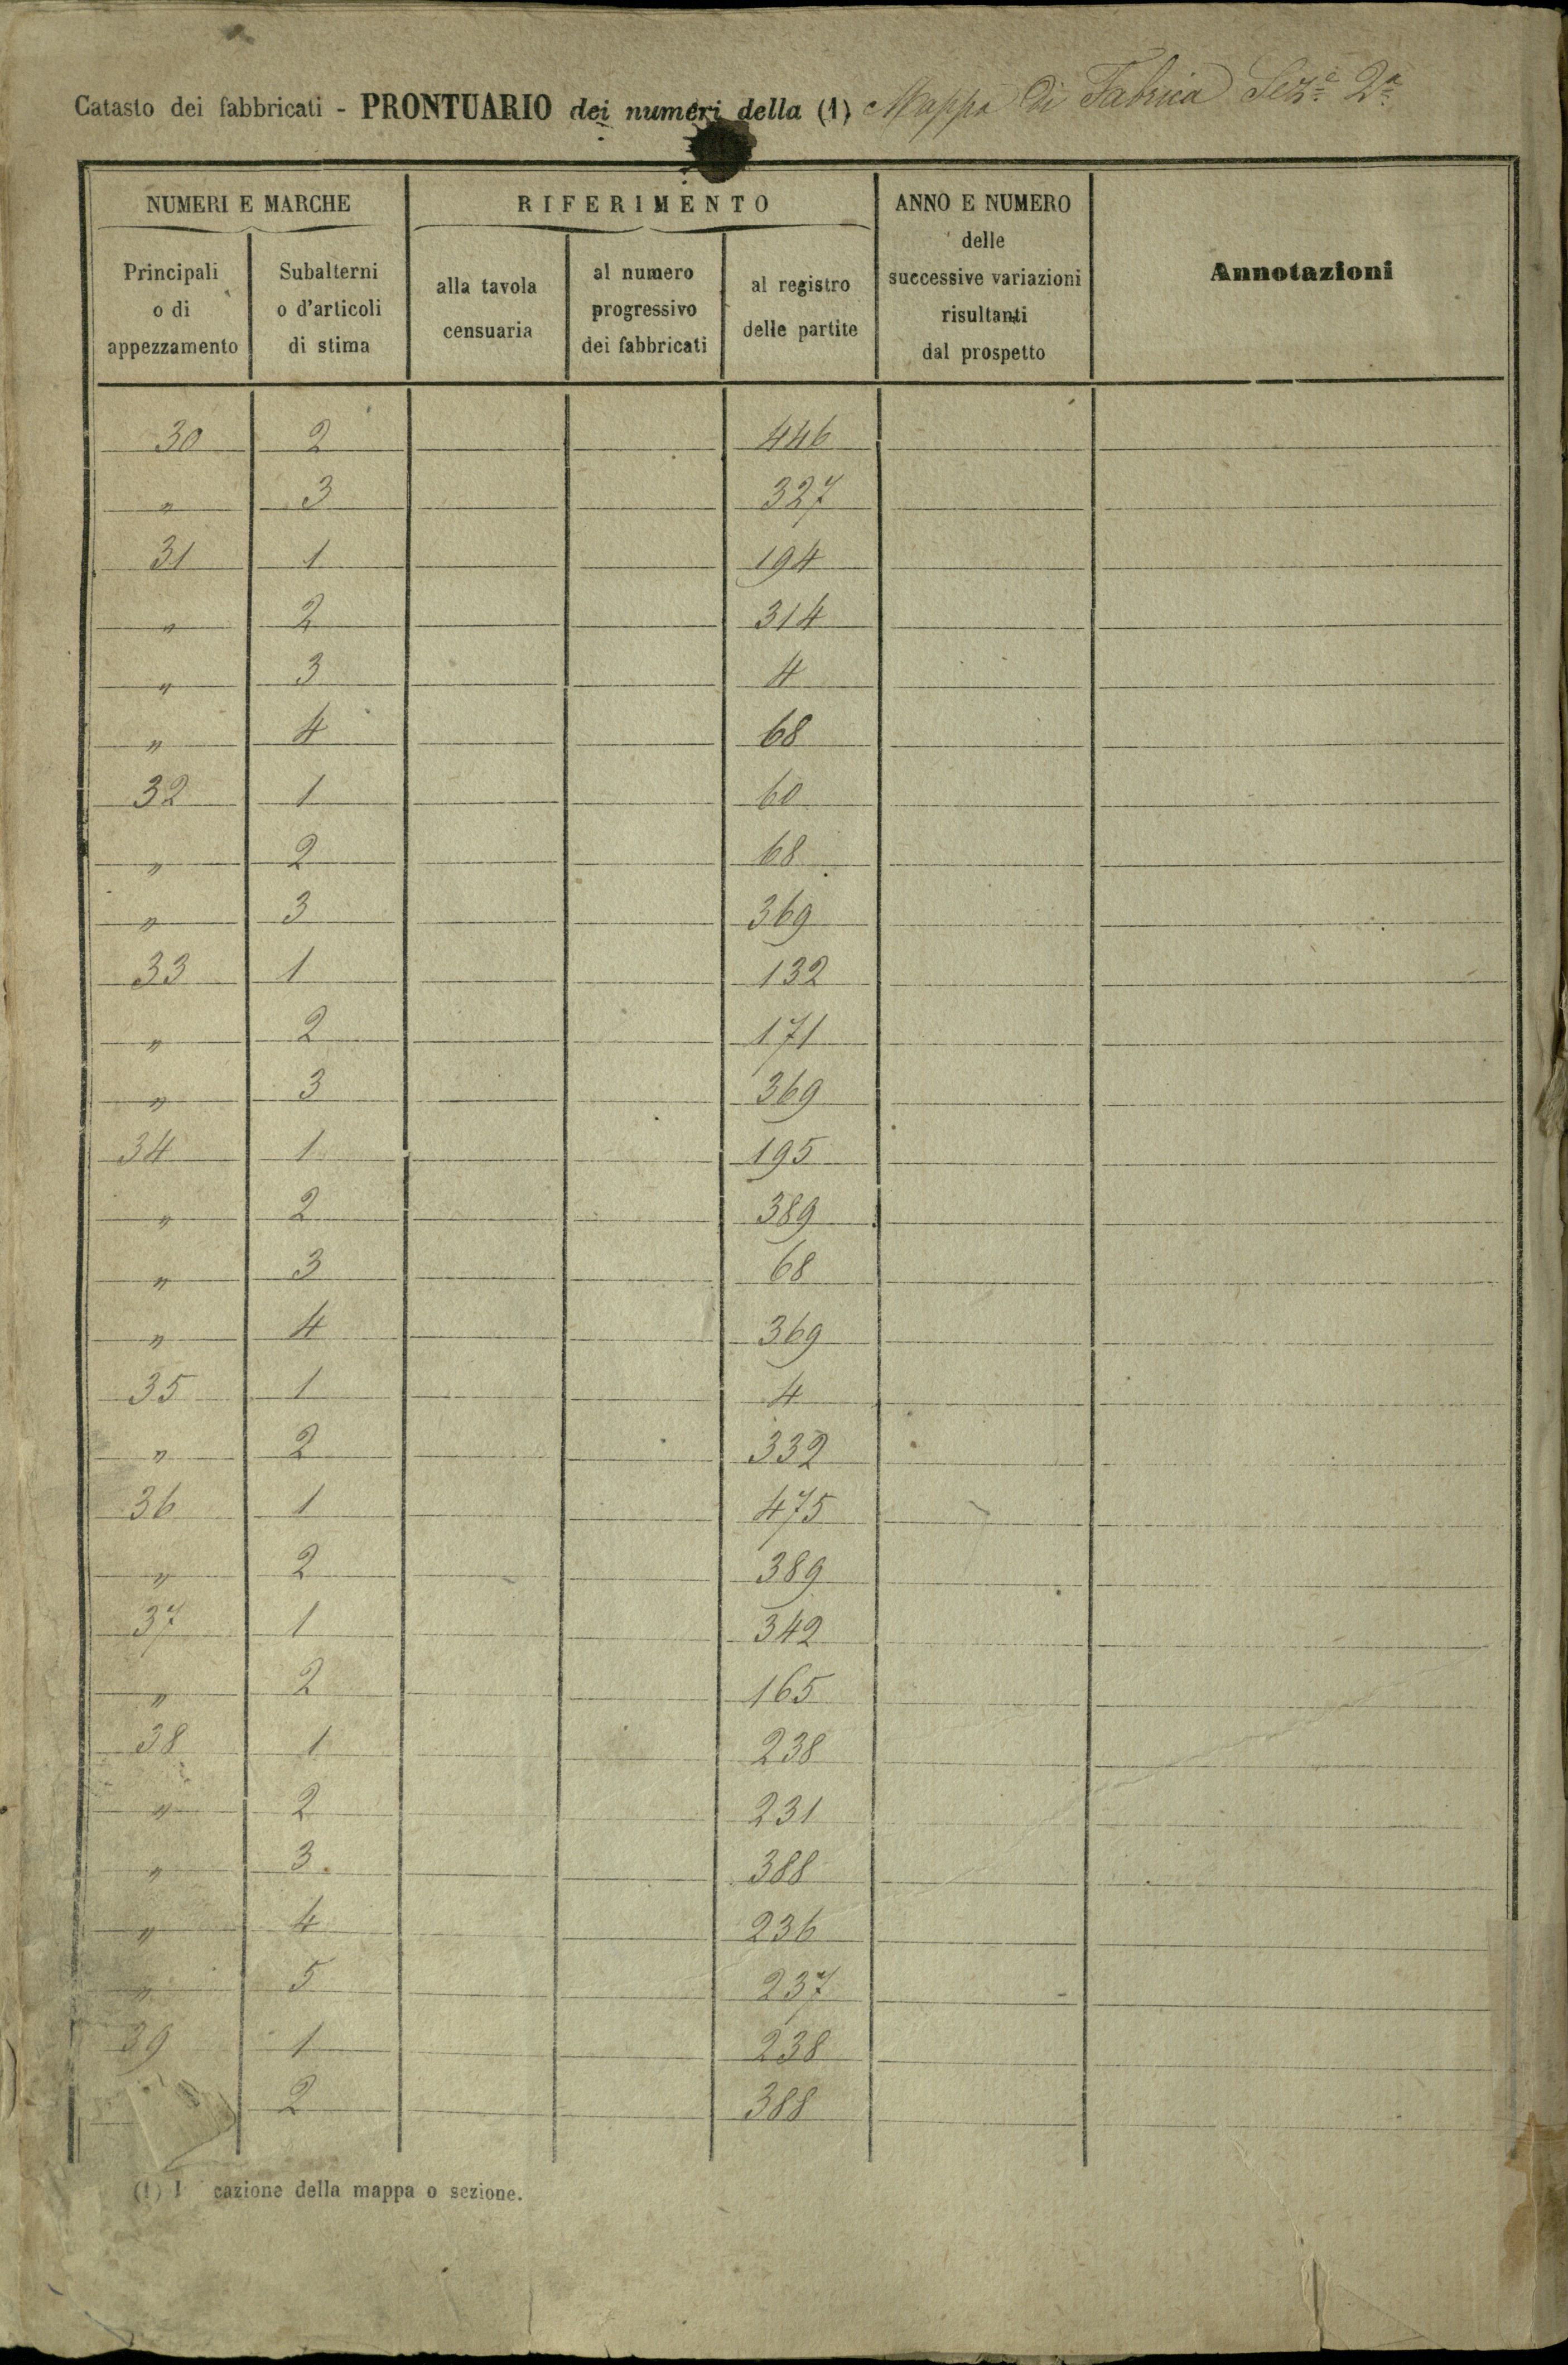 Catasto dei fabbricati - PRONTUARIO dei numeri della (1) Mappa di Fabrica Sez.e 2a
NUMERI E MARCHE
RIFERIMENTO
ANNO E NUMERO
delle
successive variazioni
risultanti
dal prospetto
Annotazioni
Principali
o di
appezzamento
Subalterni
o d'articoli
di stima
alla tavola
censuaria
al numero
progressivo
dei fabbricati
al registro
delle partite
30 2 446
" 3 327
31 1 194
" 2 314
" 3 4
" 4 68
32 1 60
" 2 68
" 3 369
33 1 132
" 2 171
" 3 369
34 1 195
" 2 389
" 3 68
" 4 369
35 1 4
" 2 332
36 1 475
" 2 389
37 1 342
" 2 165
38 1 238
" 2 231
" 3 388
" 4 236
" 5 237
39 1 238
2 388
(1) I cazione della mappa o sezione.